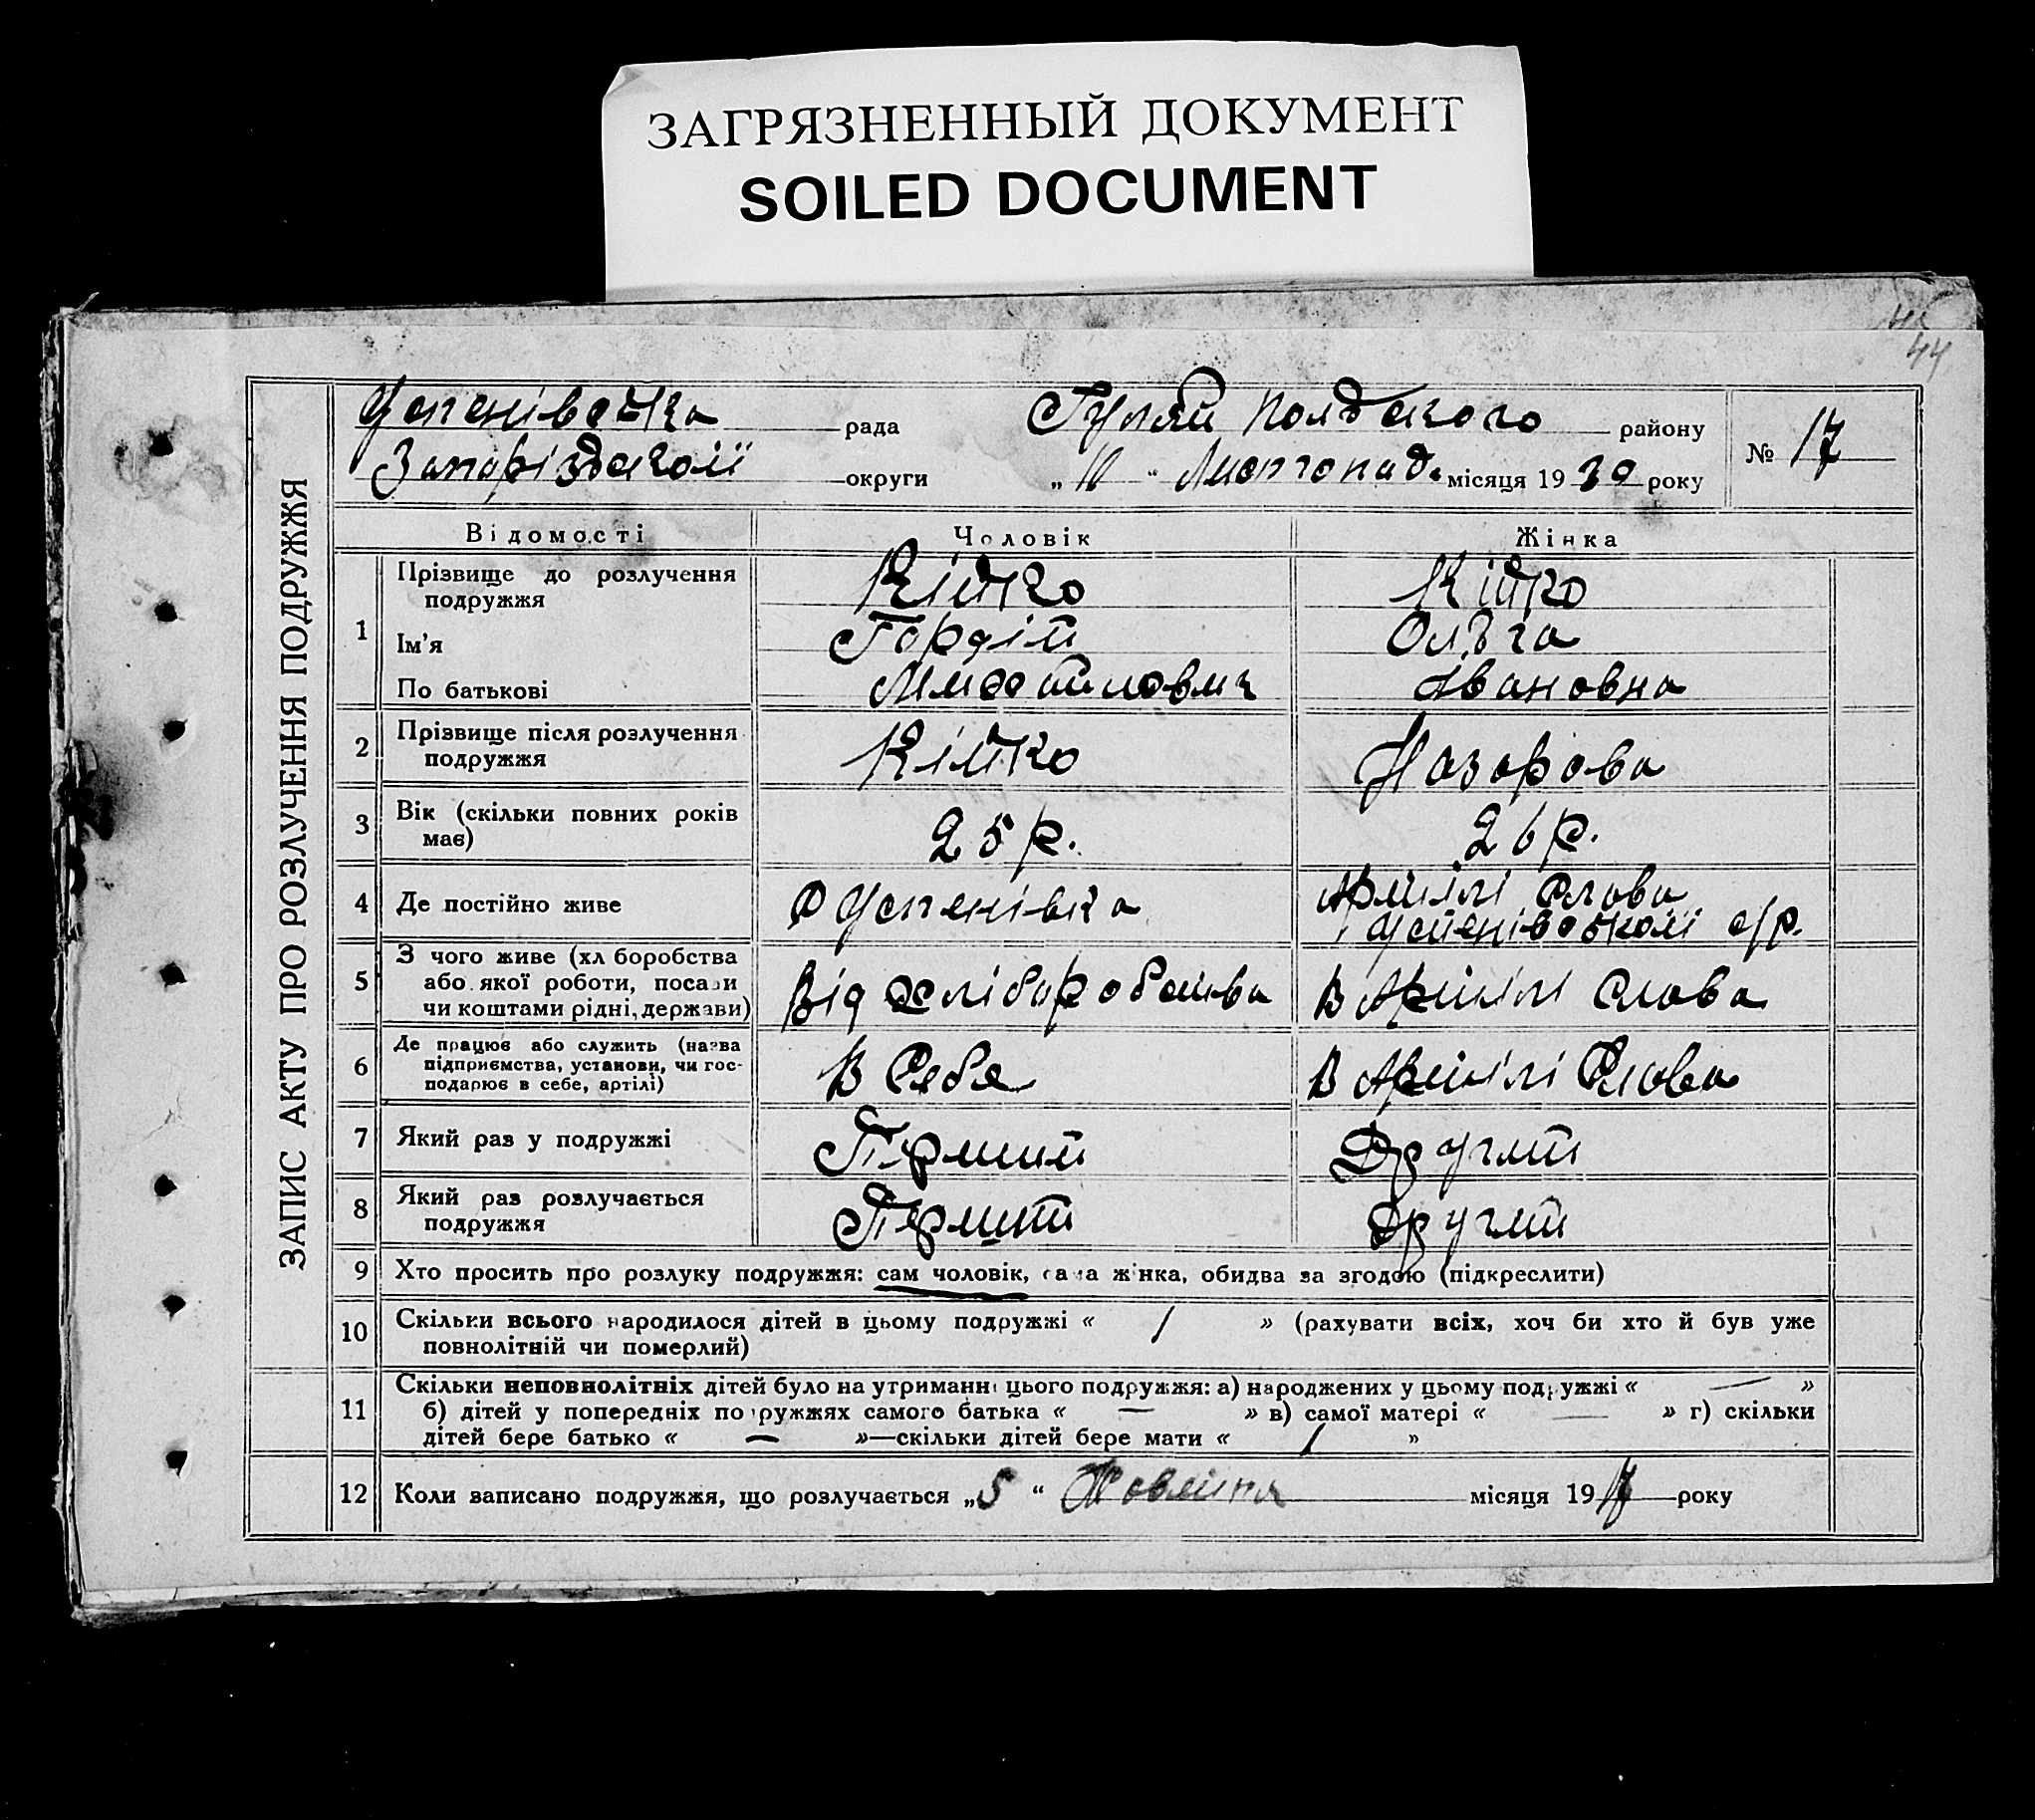 ЗАГРЯЗНЕННЫЙ ДОКУМЕНТ
SOILED DOCUMENT
44
ЗАПИС АКТУ ПРО РОЗЛУЧЕННЯ ПОДРУЖЖЯ
Успенівська рада Гуляй Польського району
Запорізської округи „ 10 “ Листопада місяця 19 30 року
№ 17
Відомості Чоловік Жінка
1 Прізвище до розлучення подружжя Кійко Кійко
Ім'я Гордій Ольга
По батькові Михайлович Івановна
2 Прізвище після розлучення подружжя Кійко Назарова
3 Вік (скільки повних років має) 25 р. 26 р.
4 Де постійно живе С Успенівка Артілі Слова Успенівської с/р.
5 З чого живе (хліборобства або якої роботи, посади чи коштами рідні, держави) Від хліборобства В Артілі Слова
6 Де працює або служить (назва підприємства, установи, чи господарює в себе, артілі) В Себе В Артілі Слова
7 Який раз у подружжі Перший Другий
8 Який раз розлучається подружжя Перший Другий
9 Хто просить про розлуку подружжя: сам чоловік, сама жінка, обидва за згодою (підкреслити)
10 Скільки всього народилося дітей в цьому подружжі « 1 » (рахувати всіх, хоч би хто й був уже
повнолітній чи померлий)
11 Скільки неповнолітніх дітей було на утриманні цього подружжя: а) народжених у цьому подружжі « — »
б) дітей у попередніх подружжях самого батька « — » в) самої матері « — » г) скільки
дітей бере батько « — »—скільки дітей бере мати « 1 »
12 Коли записано подружжя, що розлучається „5“ Жовтня місяця 19 року